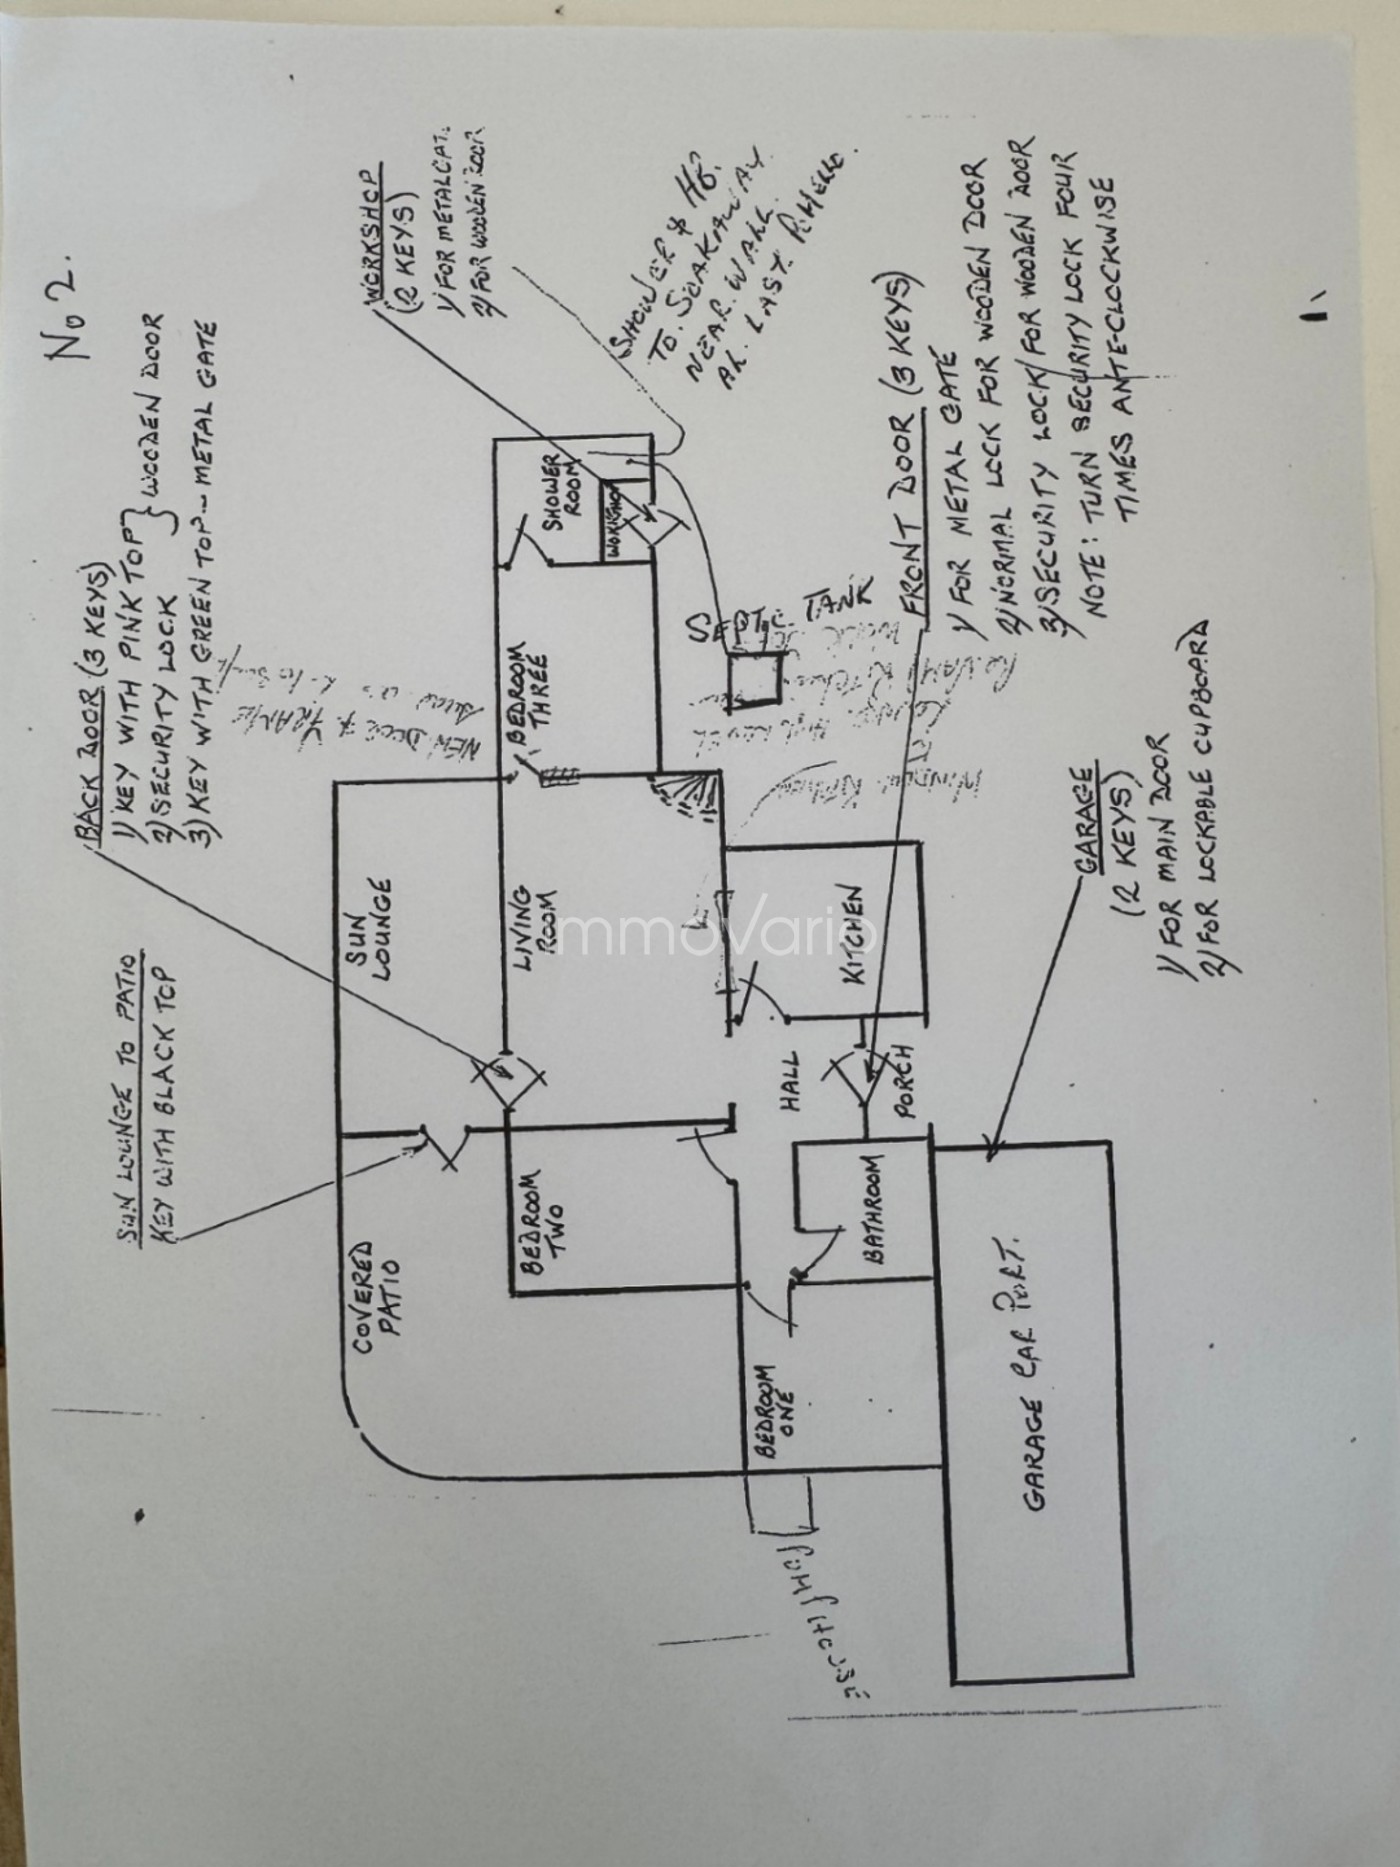 No 2.
BACK DOOR (3 KEYS)
1) KEY WITH PINK TOP } WOODEN DOOR
2) SECURITY LOCK
3) KEY WITH GREEN TOP - METAL GATE
SUN LOUNGE TO PATIO
KEY WITH BLACK TOP
WORKSHOP
(2 KEYS)
1) FOR METAL
2) FOR WOODEN DOOR
SHOWER &
TO. SOAKAWAY
NEAR. WALL
LAST
SUN
LOUNGE
COVERED
PATIO
LIVING
ROOM
BEDROOM
TWO
BEDROOM
THREE
SHOWER
ROOM
NEW DOOR & FRAME
SEPTIC TANK
KITCHEN
HALL
PORCH
BATHROOM
BEDROOM
ONE
GARAGE CAR PORT.
FRONT DOOR (3 KEYS)
1) FOR METAL GATE
2) NORMAL LOCK FOR WOODEN DOOR
3) SECURITY LOCK/FOR WOODEN DOOR
NOTE: TURN SECURITY LOCK FOUR
TIMES ANTE-CLOCKWISE
GARAGE
(2 KEYS)
1) FOR MAIN DOOR
2) FOR LOCKABLE CUPBOARD
immoVario